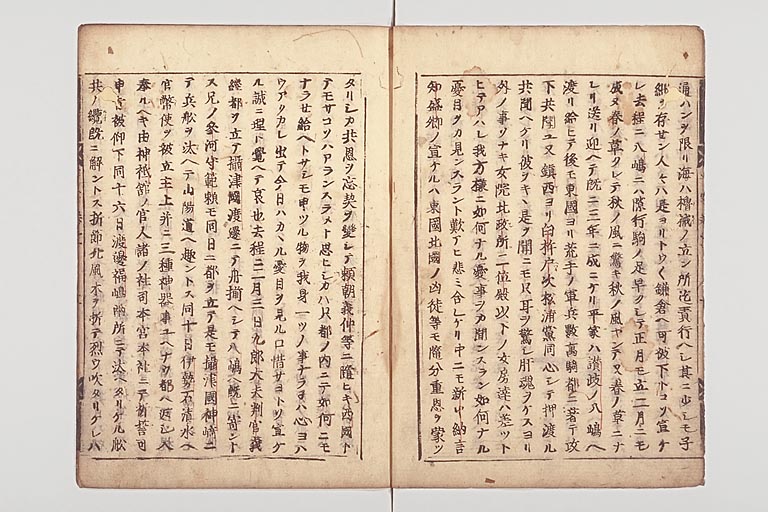 通ハンヲ限リ海ハ櫓擢ノ立ン所迄責行ヘシ其ニ少シモ子
細ヲ存セン人々ハ是ヨリトウく鎌倉ヘ可被下トコソ宣ケ
レ去程ニ八嶋ニハ隙行駒ノ足早クシテ正月モ立二月ニモ
成ヌ春ノ草クレテ秋ノ風ニ驚キ秋ノ風ヤンテ又春ノ草ニナ
レリ送リ迎ヘテ既ニ三年ニ成ニケリ平家ハ讃岐ノ八嶋ヘ
渡リ給ヒテ後モ東國ヨリ荒手ノ軍兵數萬騎都ニ著テ攻
下共聞ユ又鎮西ヨリ臼杵戸次松浦黨同心シテ押渡ル
共聞ヘケリ彼ヲキヽ是ヲ聞ニモ只耳ヲ驚シ肝魂ヲケスヨリ
外ノ事ソナキ女院北政所二位殿以下ノ女房達ハ差ツト
ヒテアハレ我方樣ニ如何ナル憂事ヲカ聞ンスラン如何ナル
憂目ヲカ見ンスラント歎アヒ悲ミ合レケリ中ニモ新中納言
知盛卿ノ宣ケルハ東國北國ノ凶徒等モ隨分重恩ヲ蒙ツ
タリシカ共恩ヲ忘契ヲ變シテ頼朝義仲等ニ隨ヒキ西國ト
テモサコソハアランスラメト思ヒシカハ只都ノ内ニテ如何ニモ
ナラせ給ヘトサシモ申ツル物ヲ我身一ツノ事ナラネハ心ヨハ
ウアクカレ出テ今日ハカヽル憂目ヲ見ル口惜サヨトソ宣ケ
ル誠ニ理ト覺ヘテ哀也去程ニ二月三日九郎大夫判官義
經都ヲ立テ攝津國渡邊ニテ舟揃ヘシテ八嶋ヘ既ニ寄ント
ス兄ノ參河守範頼モ同日ニ都ヲ立テ是モ攝津國神崎ニ
テ兵舩ヲ汰ヘテ山陽道ヘ趣ントス同十日伊勢石清水ヘ
官幣使ヲ被立主上并ニ三種神器事ユヘナウ都ヘ返シ入
奉ルヘキ由神祇部ノ官人諸ノ社司本宮本社ニテ祈誓可
申旨被仰下同十六日渡邊福嶋兩所ニテ汰ヘタリケル舩
共ノ纜既ニ解ントス折節北風木ヲ折テ烈ウ吹タリケレハ